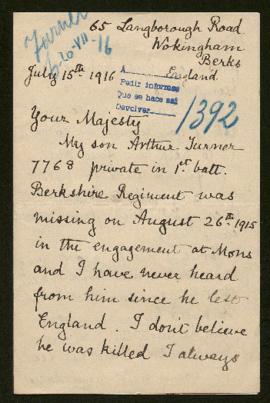 Turner
20-VII-16
65 Langborough Road
Wokingham
Berks
July 15th 1916
England
A
Pedir informes
Que se hace así
Devolver
1392
Your Majesty
My son Arthur Turner
7768 private in 1st batt.
Berkshire Regiment was
missing on August 26th 1915
in the engagement at Mons
and I have never heard
from him since he left
England. I don't believe
he was killed I always